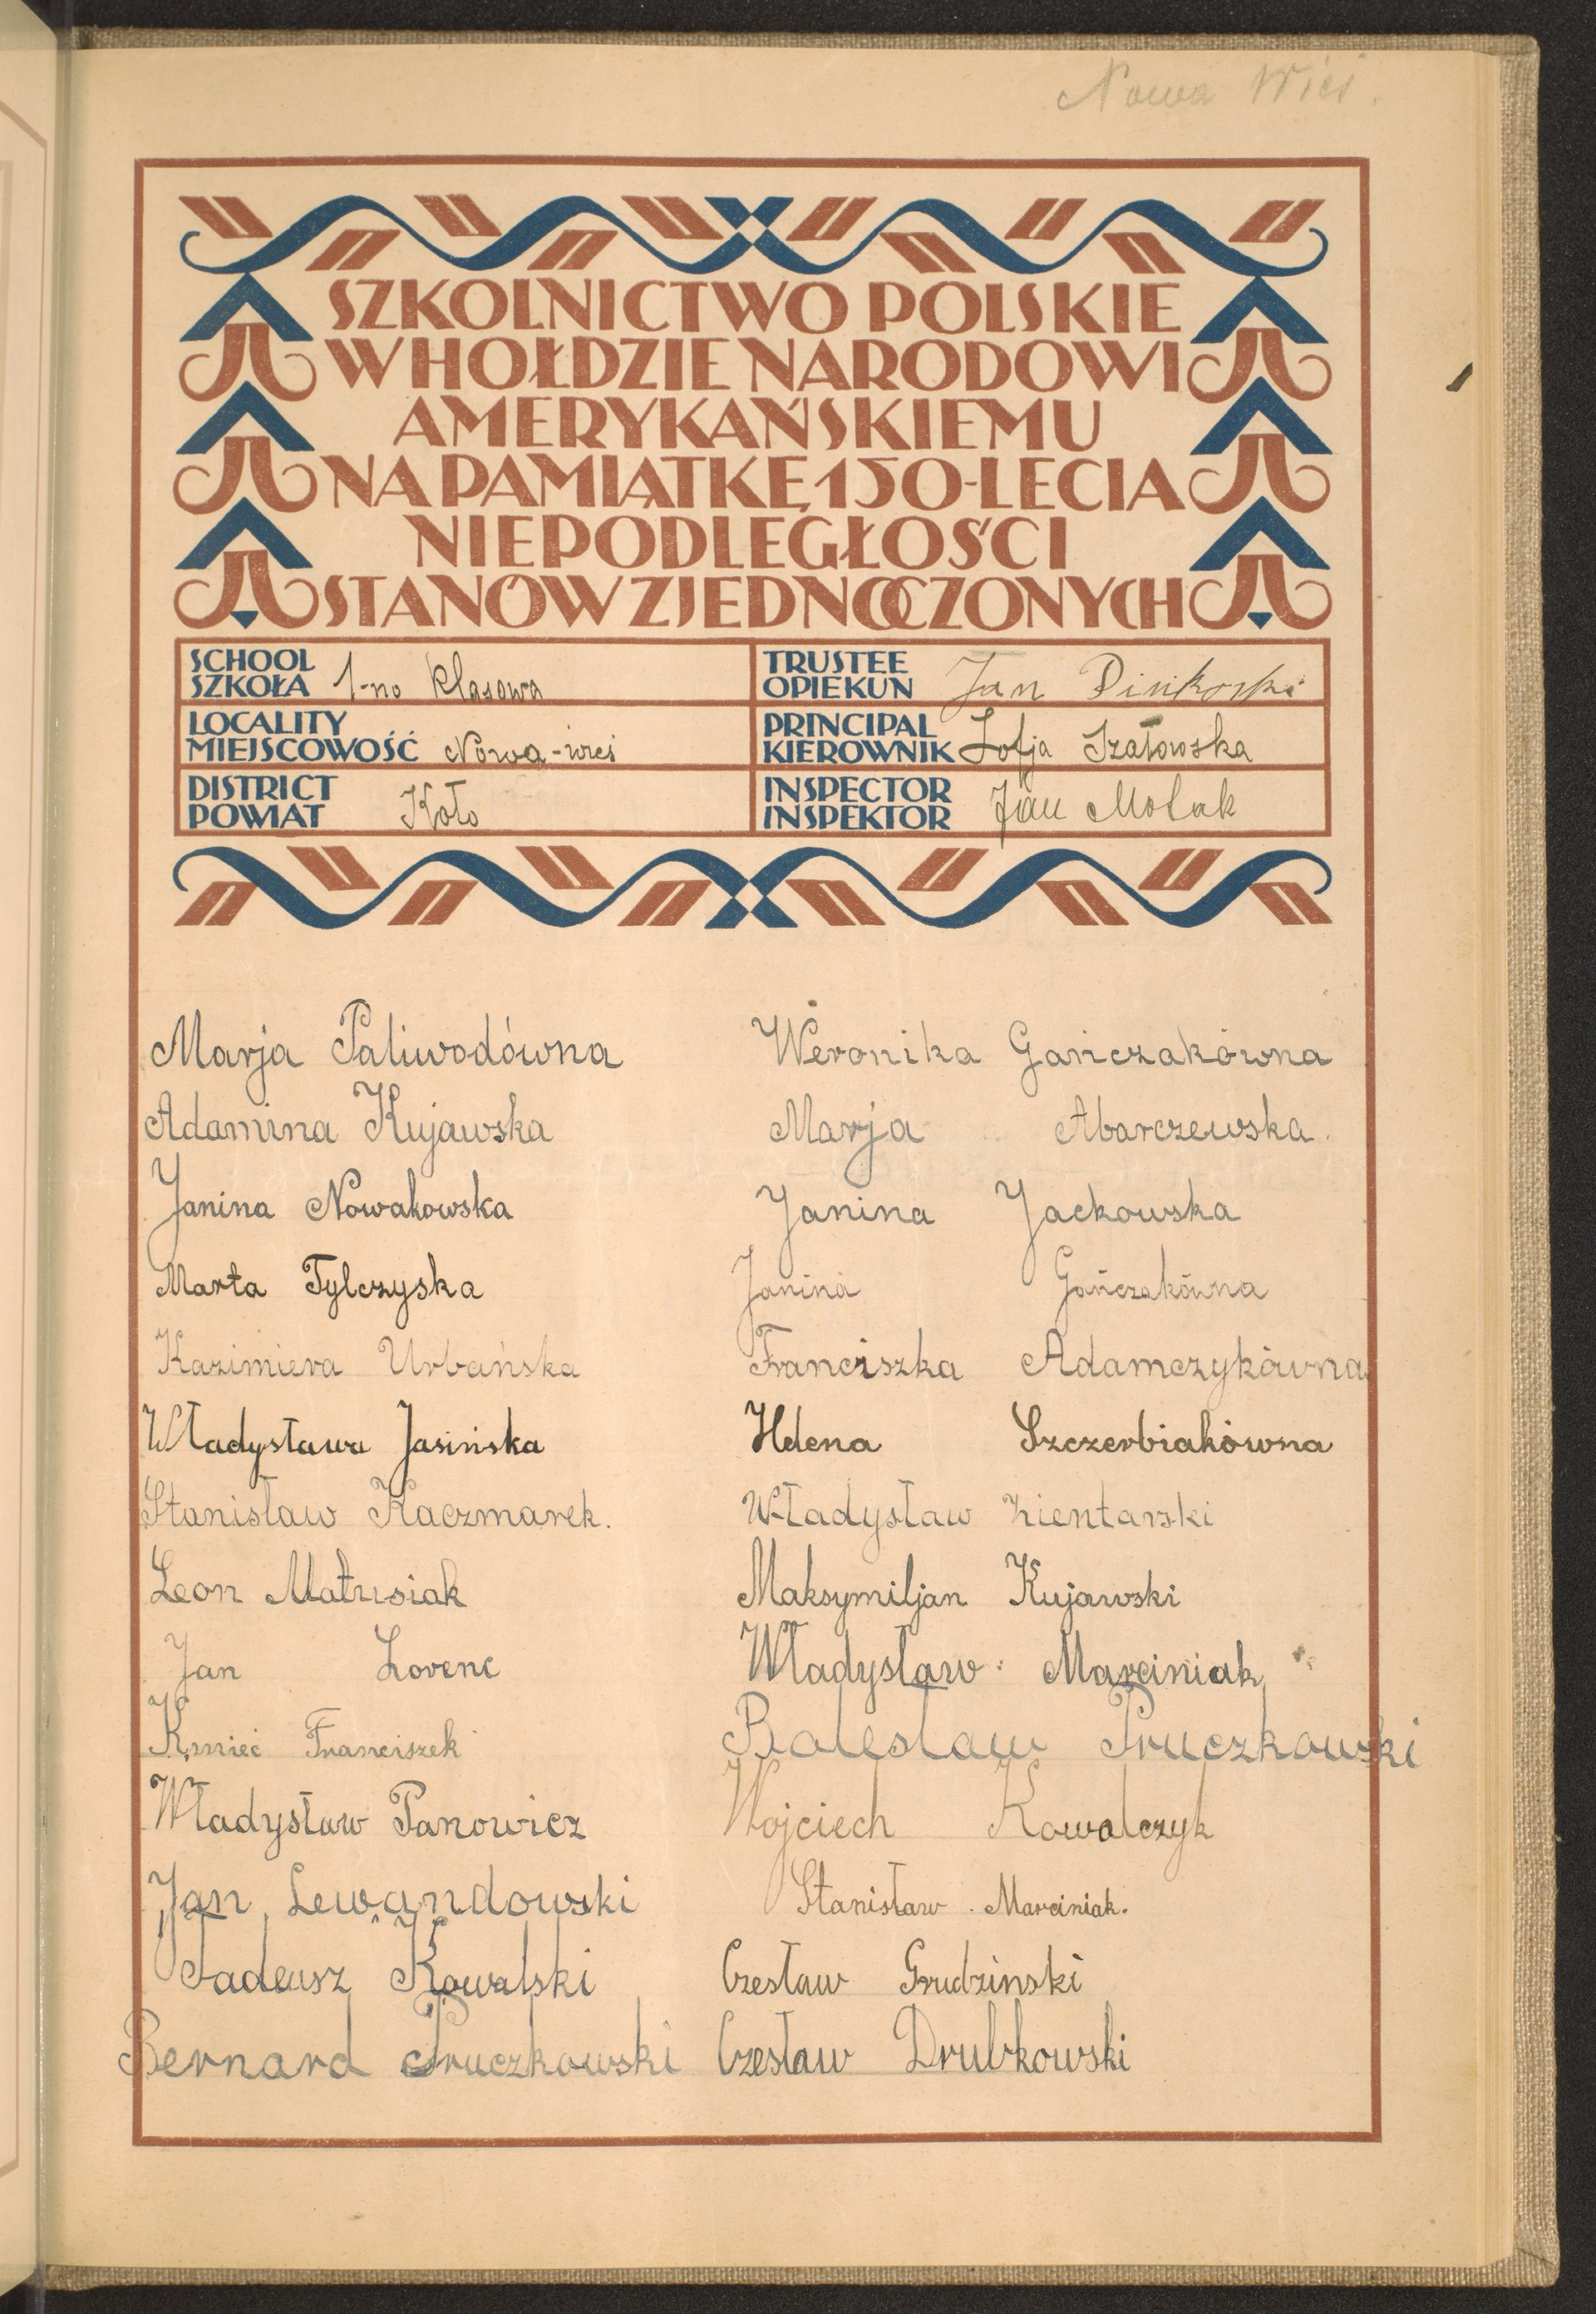 Nowa Wieś.
SZKOLNICTWO POLSKIE
W HOŁDZIE NARODOWI
AMERYKAŃSKIEMU
NA PAMIĄTKĘ 150-LECIA
NIEPODLEGŁOŚCI
STANÓW ZJEDNOCZONYCH
SCHOOL
SZKOŁA 1-no klasowa
LOCALITY
MIEJSCOWOŚĆ Nowa-wieś
DISTRICT
POWIAT Koło
TRUSTEE
OPIEKUN Jan
PRINCIPAL
KIEROWNIK Zofja Szałowska
INSPECTOR
INSPEKTOR Jan Molak
Marja Paliwodówna
Adamina Kujawska
Janina Nowakowska
Marta Tylczyska
Kazimiera Urbańska
Władysława Jasińska
Stanisław Kaczmarek.
Leon Matusiak
Jan Lorenc
Kmieć Franciszek
Władysław Panowicz
Jan Lewandowski
Tadeusz Kowalski
Bernard Pruczkowski
Weronika Gańczakówna
Marja Abarczewska.
Janina Jackowska
Janina Gańczakówna
Franciszka Adamczykówna
Helena Szczerbiakówna
Władysław Zientarski
Maksymiljan Kujawski
Władysław Marciniak
Bolesław Pruczkowski
Wojciech Kowalczyk
Stanisław Marciniak.
Czesław Grudzinski
Czesław Drubkowski